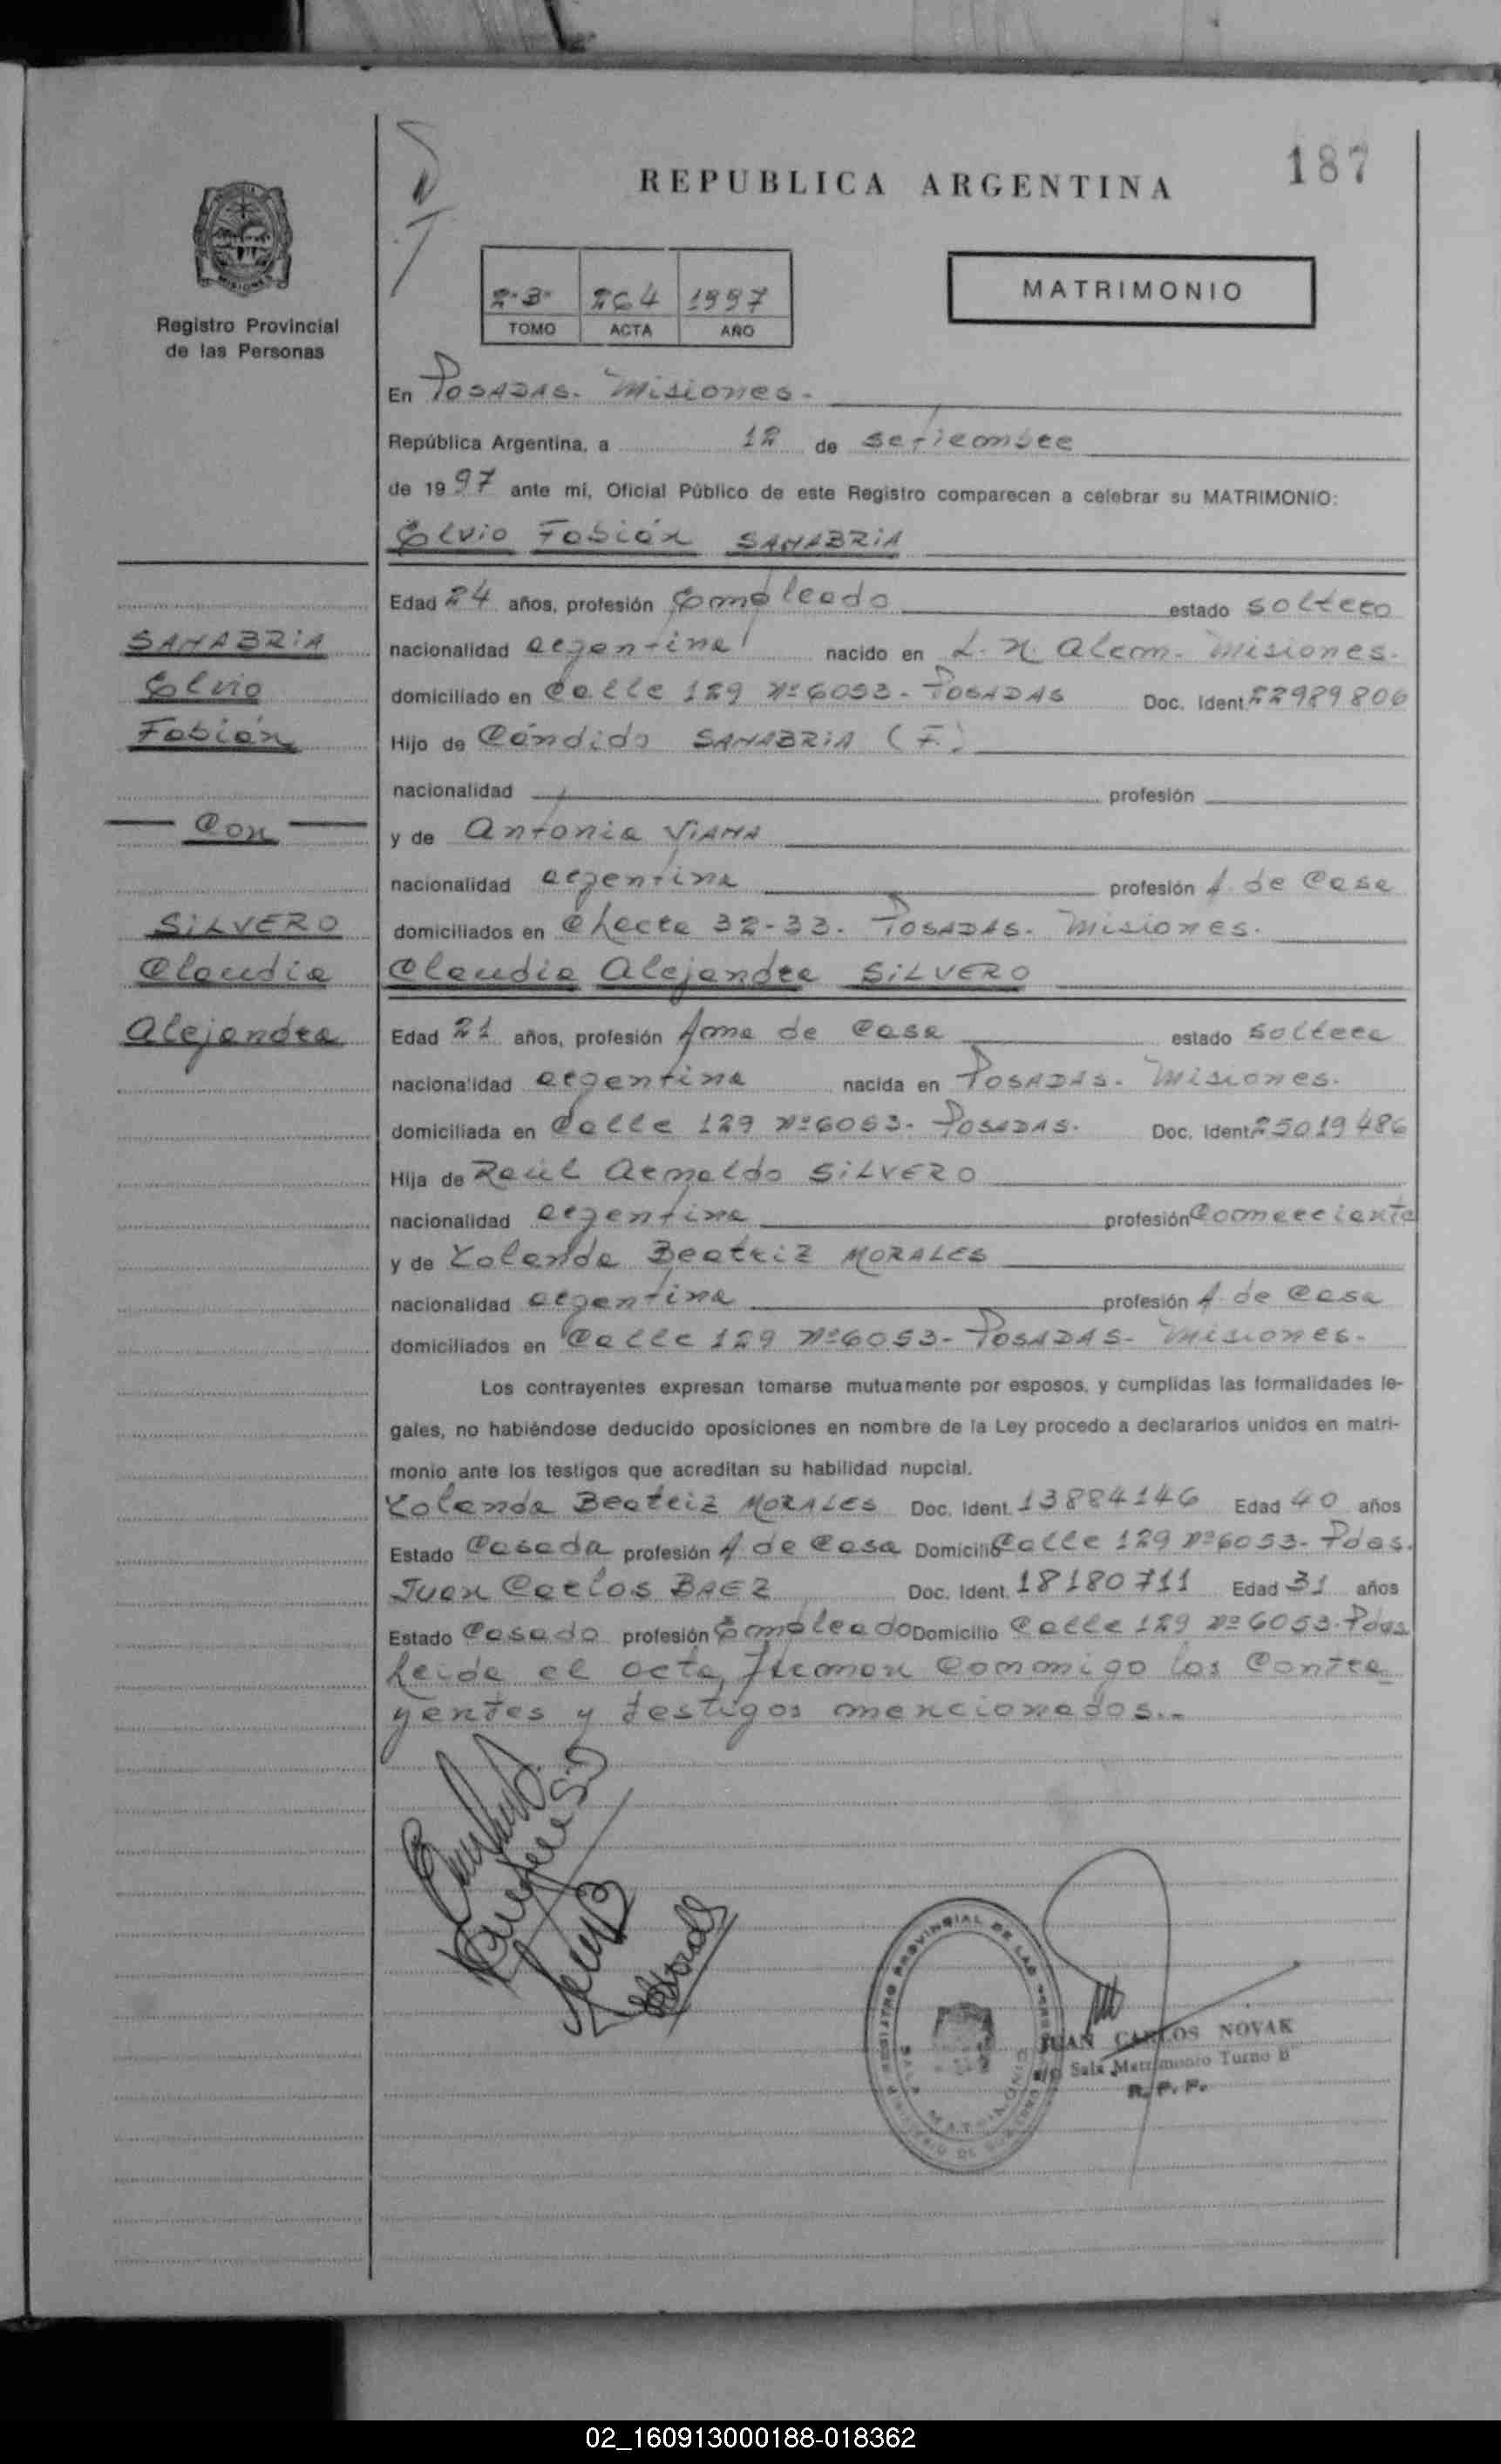 187
REPUBLICA ARGENTINA
MATRIMONIO
Registro Provincial
de las Personas
2-B- 264 1997
TOMO ACTA AÑO
En POSADAS. Misiones.
República Argentina, a 12 de setiembre
de 1997 ante mí, Oficial Público de este Registro comparecen a celebrar su MATRIMONIO:
Elvio Fabián SANABRIA
Edad 24 años, profesión Empleado estado soltero
SANABRIA
nacionalidad argentina nacido en L. N. Alem. Misiones.
Elvio
domiciliado en Calle 129 Nº 6053. POSADAS Doc. Ident. 22989806
Fabián
Hijo de Cándido SANABRIA (F.)
nacionalidad profesión
Con
y de Antonia VIANA
nacionalidad argentina profesión A. de Casa
SILVERO
domiciliados en Chacra 32-33. POSADAS. Misiones.
Claudia
Claudia Alejandra SILVERO
Alejandra
Edad 21 años, profesión Ama de Casa estado soltera
nacionalidad argentina nacida en POSADAS. Misiones.
domiciliada en Calle 129 Nº 6053. POSADAS. Doc. Ident. 25019486
Hija de Raúl Arnaldo SILVERO
nacionalidad argentina profesión Comerciante
y de Yolanda Beatriz MORALES
nacionalidad argentina profesión A. de Casa
domiciliados en Calle 129 Nº 6053- POSADAS- Misiones.
Los contrayentes expresan tomarse mutuamente por esposos, y cumplidas las formalidades le-
gales, no habiéndose deducido oposiciones en nombre de la Ley procedo a declararlos unidos en matri-
monio ante los testigos que acreditan su habilidad nupcial.
Yolanda Beatriz MORALES Doc. Ident. 13884146 Edad 40 años
Estado Casada profesión A de Casa Domicilio Calle 129 Nº 6053- Pdas.
Juan Carlos BAEZ Doc. Ident. 18180711 Edad 31 años
Estado Casado profesión Empleado Domicilio Calle 129 Nº 6053- Pdas
Leida el acta, firman conmigo los Contra
yentes y testigos mencionados..
REGISTRO PROVINCIAL DE LAS
SALA MATRIMONIO
JUAN CARLOS NOVAK
a/c Sala Matrimonio Turno B
R. P. P.
02_160913000188-018362